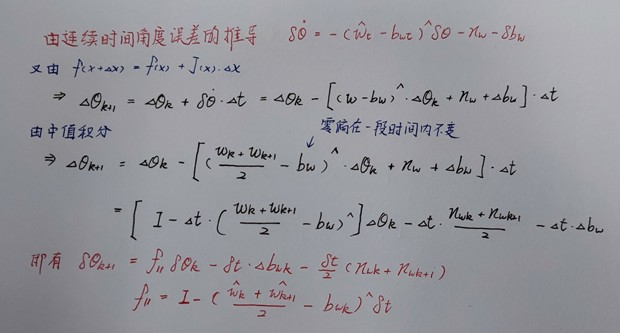 由连续时间角度误差的推导 δθ̇ = -(ω̂t - bωt)^δθ - nω - δbω
又由 f(x+Δx) = f(x) + J(x)·Δx
⇒ Δθk+1 = Δθk + δθ̇·Δt = Δθk - [(ω-bω)^·Δθk + nω + Δbω]·Δt
由中值积分 零偏在一段时间内不变
⇒ Δθk+1 = Δθk - [(ωk+ωk+1/2 - bω)^·Δθk + nω + Δbω]·Δt
= [I - Δt·(ωk+ωk+1/2 - bω)^]Δθk - Δt·nωk+nωk+1/2 - Δt·Δbω
即有 δθk+1 = f11 δθk - δt·Δbωk - δt/2 (nωk + nωk+1)
f11 = I - (ω̂k + ω̂k+1/2 - bωk)^δt